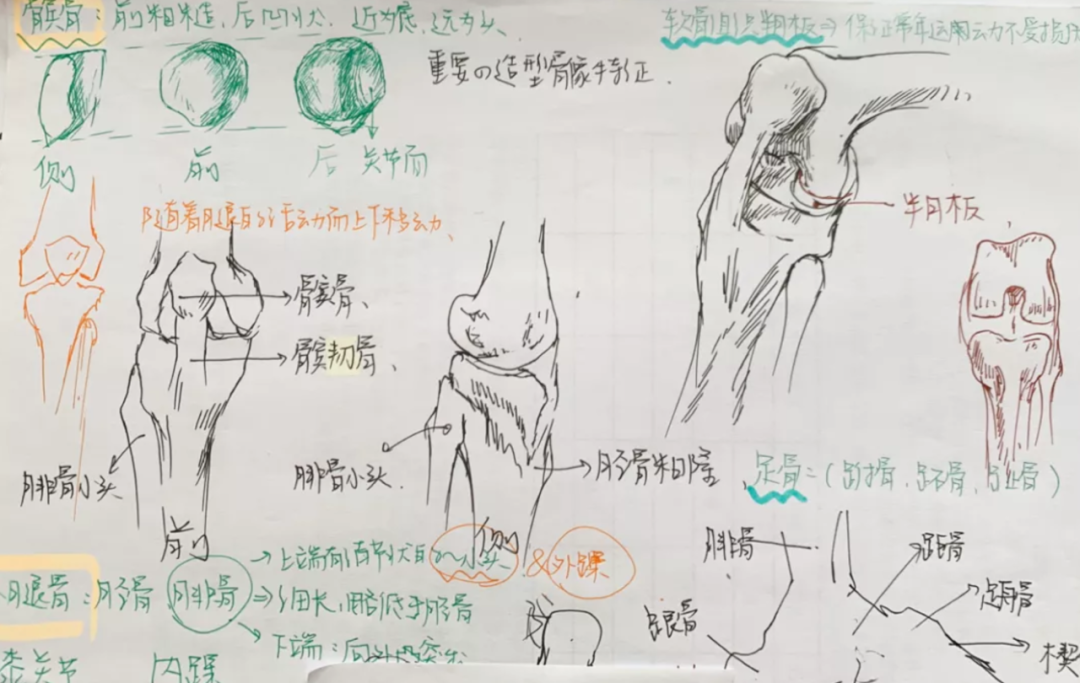 髌骨：前粗糙，后凹状，近为底，远为尖、
软骨月只相板⇒保证常年运用动力不受损伤
重要の造型骨家特征．
侧
前
后 关节面
随着月退的活动而上下移动、
半月板
髌骨、
髌韧骨、
腓骨小头
腓骨小头．
胫骨粗隆
足骨=(跗骨、跖骨、趾骨)
前
侧
上端有
小头
&外踝
腿骨：胫骨 腓骨
细长，略低于胫骨
下端：向外
膝关节 内踝
腓骨
跟骨
距骨
楔